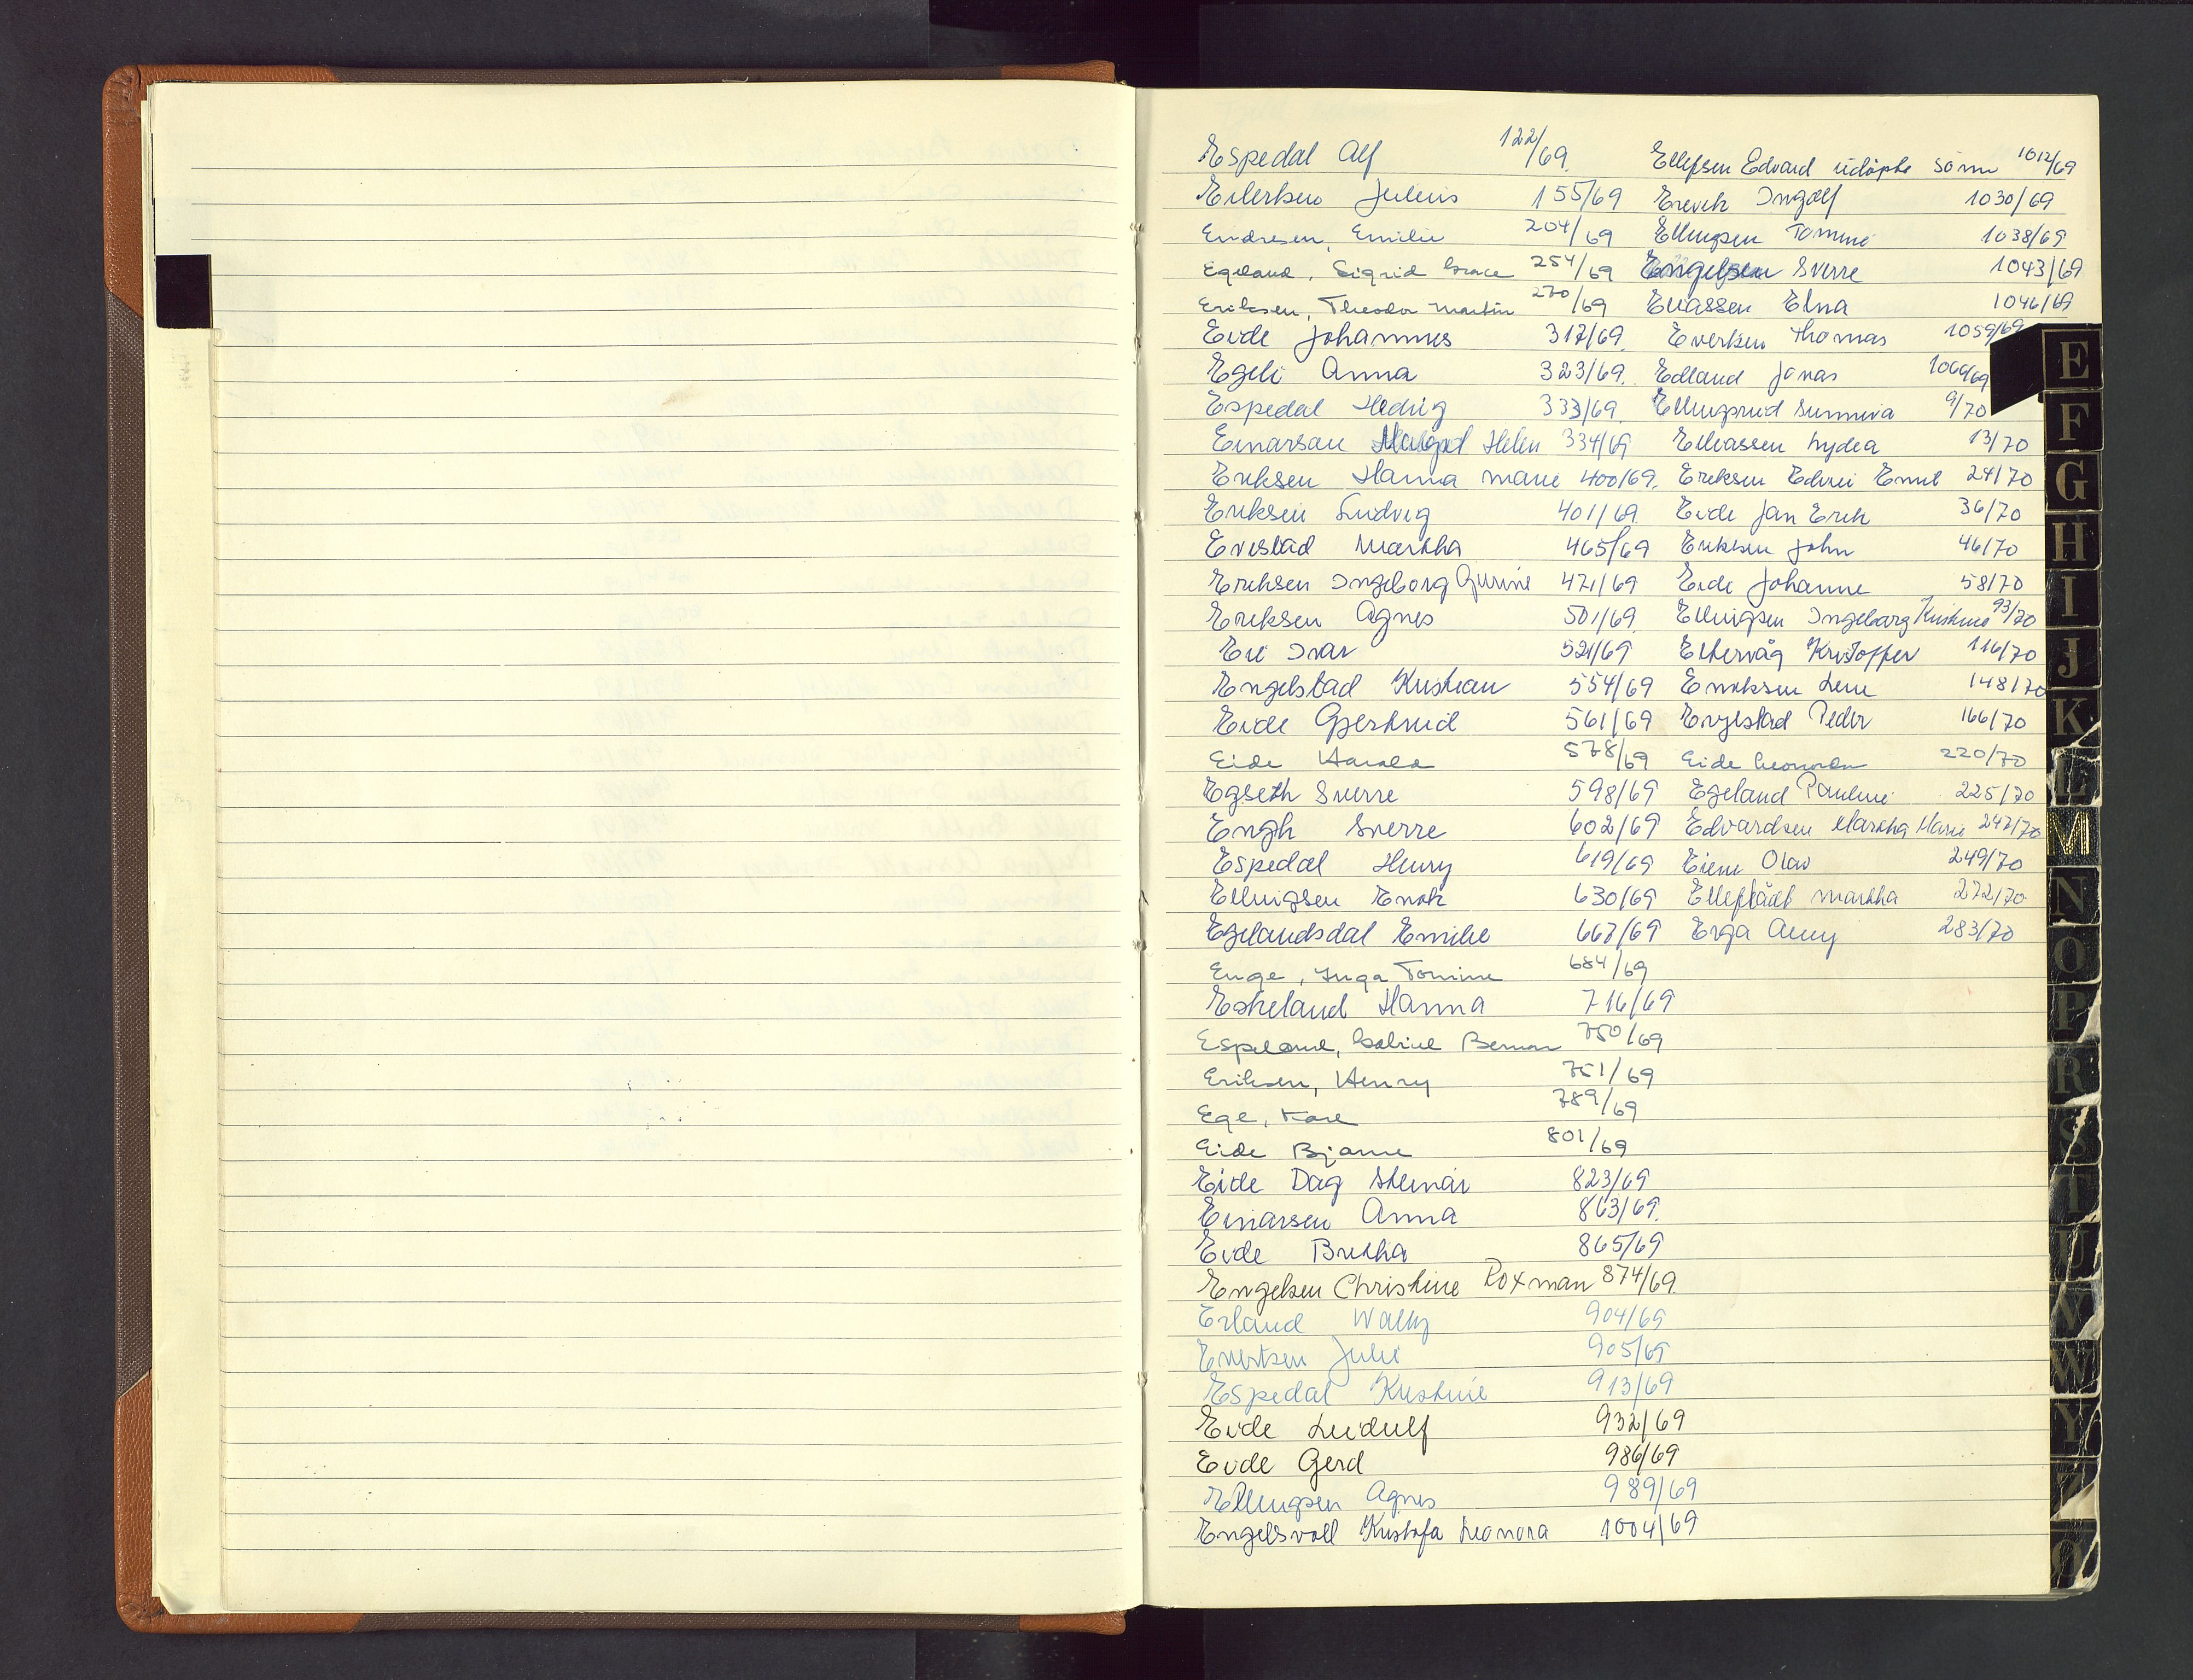 Espedal Alf 122/69.
Eilertsen Julius 155/69
Endresen, Emilie 204/69
Egeland, Sigrid Grace 254/69
Eriksen, Theodor Martin 270/69
Eide Johannes 317/69.
Egeli Anna 323/69.
Espedal Hedvig 333/69.
Einarsau Helen 334/69
Eriksen Hanna Marie 400/69.
Eriksen Ludvig 401/69.
Evestad Martha 465/69
Eriksen Ingeborg Gurine 471/69
Eriksen Agnes 501/69.
Eie Ivar 521/69
Engelstad Kristian 554/69
Eide Gjertrud 561/69
Eide Harald 578/69
Egseth Sverre 598/69
Engh Sverre 602/69
Espedal Henry 619/69
Ellingsen Enok 630/69
Egelandsdal Emilie 667/69
Enge, Inga Tomine 684/69
Eskeland Hanna 716/69
Espeland, Gabriel Berner 750/69
Eriksen, Henry 751/69
Ege, Kare 789/69
Eide Bjarne 801/69
Eide Dag Steinar 823/69
Einarsen Anna 863/69.
Eide Bertha 865/69
Engelsen Christine Roxman 874/69.
Erland Wally 904/69
Evertsen Julie 905/69
Espedal Kristine 913/69
Eide Leidulf 932/69
Eide Gerd 986/69
Ellingsen Agnes 989/69
Engelsvoll Kristofa Leonora 1004/69
Ellefsen Edvard udøpte sønn 1012/69
Erevik Ingolf 1030/69
Ellingsen Tomine 1038/69
Engelsen Sverre 1043/69
Eliassen Elna 1046/69
Evertsen Thomas 1059/69
Edland Jonas 1060/69
Ellingsrud Sunniva 9/70
Elliassen Lydia 13/70
Eriksen Edvin Emil 24/70
Eide Jan Erik 36/70
Eriksen John 46/70
Eide Johanne 58/70
Ellingsen Ingeborg Kristine 93/70
Eltervåg Kristoffer 116/70
Enoksen Lene 148/70
Engelstad Peder 166/70
Eide Leonard 220/70
Egeland Pauline 225/70
Edvardsen Martha Marie 247/70
Eiene Olav 249/70
Ellefstådt Martha 272/70
Erga Anny 283/70
E
F
G
H
I
J
K
L
M
N
O
P
R
S
T
U
V
W
Y
Z
Ø